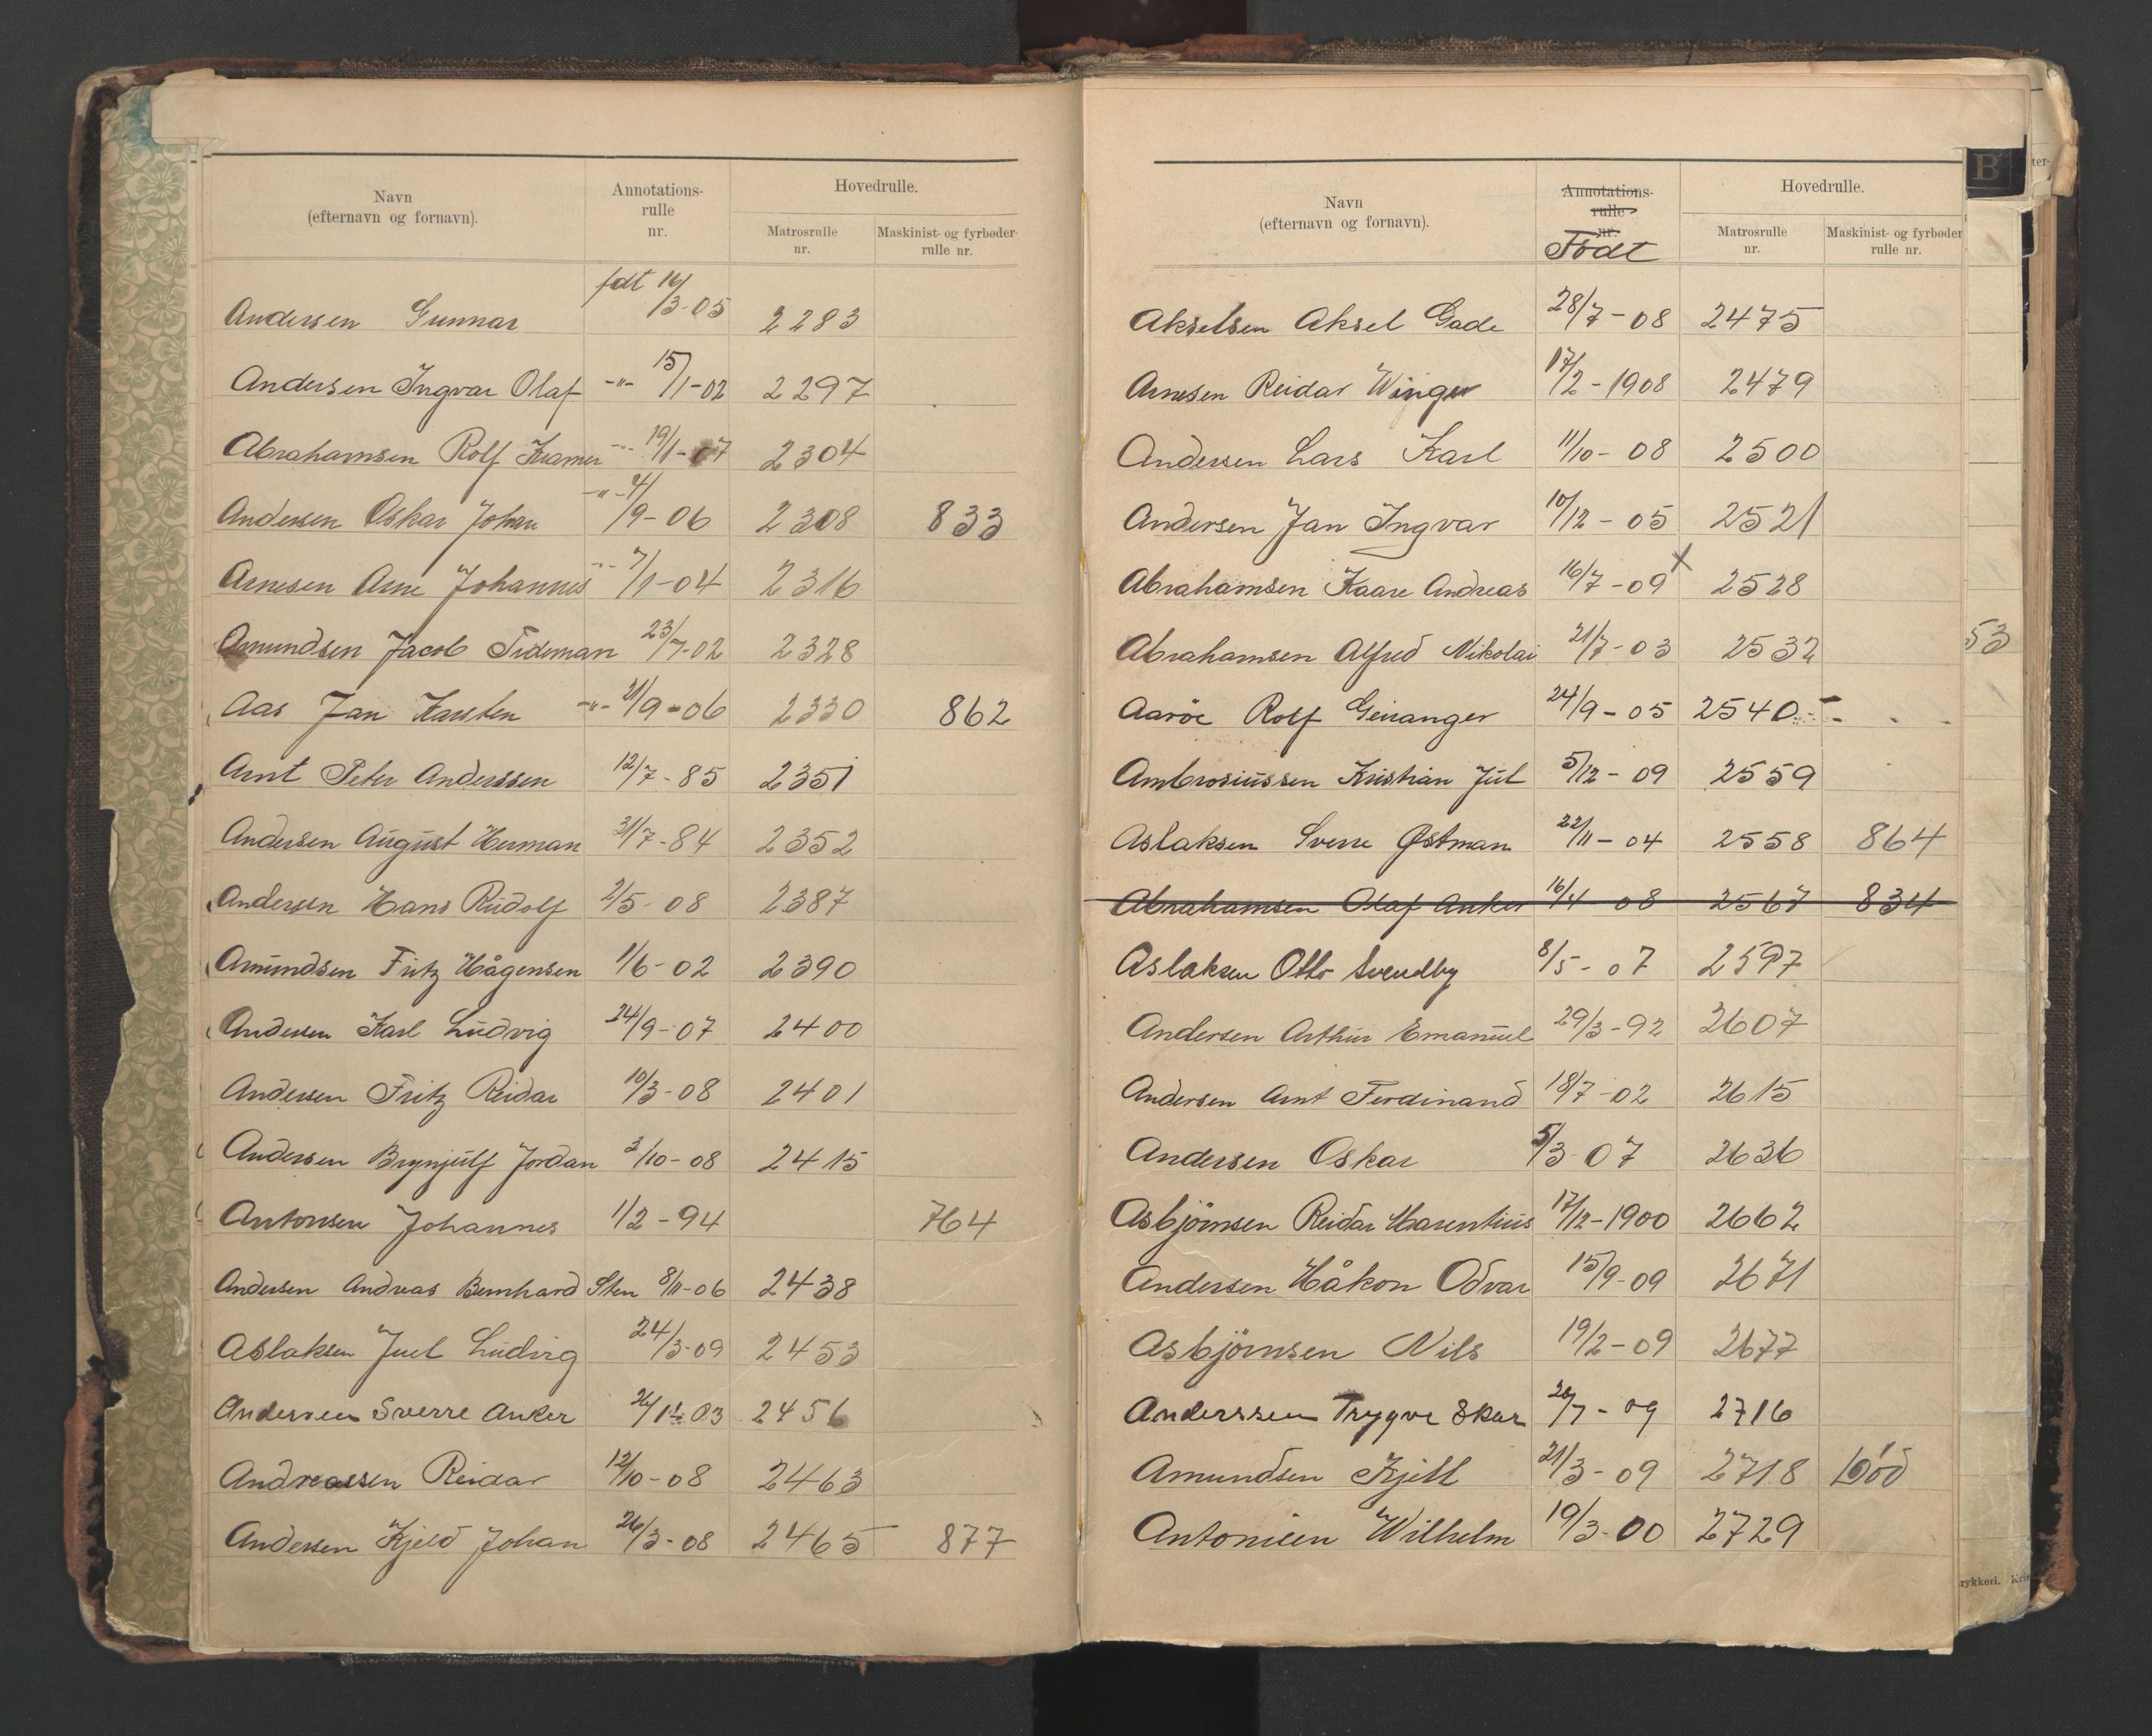 Navn
(efternavn og fornavn).
Annotations-
rulle
nr.
Hovedrulle.
Matrosrulle
nr.
Maskinist- og fyrbøder-
rulle nr.
Andersen Gunnar født 14/3-05 2283
Andersen Ingvar Olaf -"- 15/1-02 2297
Abrahamsen Rolf Kramer -"- 19/1-07 2304
Andersen Oskar Johan -"- 4/9-06 2308 833
Arnesen Arne Johannes -"- 7/1-04 2316
Amundsen Jacob Tideman 23/7-02 2328
Aas Jan Karsten -"- 21/9-06 2330 862
Arnt Peter Anderssen 12/7-85 2351
Andersen August Herman 31/7-84 2352
Andersen Hans Rudolf 2/5-08 2387
Amundsen Fritz Hågensen 1/6-02 2390
Andersen Karl Ludvig 24/9-07 2400
Andersen Fritz Reidar 10/3-08 2401
Andersen Brynjulf Jordan 3/10-08 2415
Antonsen Johannes 1/2-94 764
Andersen Andreas Bernhard Sten 8/11-06 2438
Aslaksen Juel Ludvig 24/3-09 2453
Andersen Sverre Anker 2456
Andreassen Reidar 12/10-08 2463
Andersen Kjeld Johan 26/3-08 2465 877
Navn
(efternavn og fornavn).
Annotations-
rulle
nr.
Født
Hovedrulle.
Matrosrulle
nr.
Maskinist- og fyrbøder
rulle nr.
Akselsen Aksel Gade 28/7-08 2475
Arnesen Reidar Winger 17/2-1908 2479
Andersen Lars Karl 11/10-08 2500
Andersen Jan Ingvar 10/12-05 2521
Abrahamsen Kaare Andreas 16/7-09 x 2528
Abrahamsen Alfred Nikolai 21/7-03 2532
Aaröe Rolf Geiranger 24/9-05 2540
Ambrosiussen Kristian Jul 5/12-09 2559
Aslaksen Sverre Østman 22/11-04 2558 864
Abrahamsen Olaf Anker 16/4 08 2567 834
Aslaksen Otto Svendby 8/5-07 2597
Andersen Arthur Emanuel 29/3-92 2607
Andersen Arnt Ferdinand 18/7-02 2615
Andersen Oskar 5/3-07 2636
Asbjörnsen Reidar Marentius 17/12-1900 2662
Andersen Håkon Odvar 15/9-09 2671
Asbjörnsen Nils 19/2-09 2677
Anderssen Trygve Skar 20/7-09 2716
Amundsen Kjell 21/3-09 2718 Död
Antonisen Wilhelm 19/3-00 2729
B
ter-
53
rykkeri. Kris